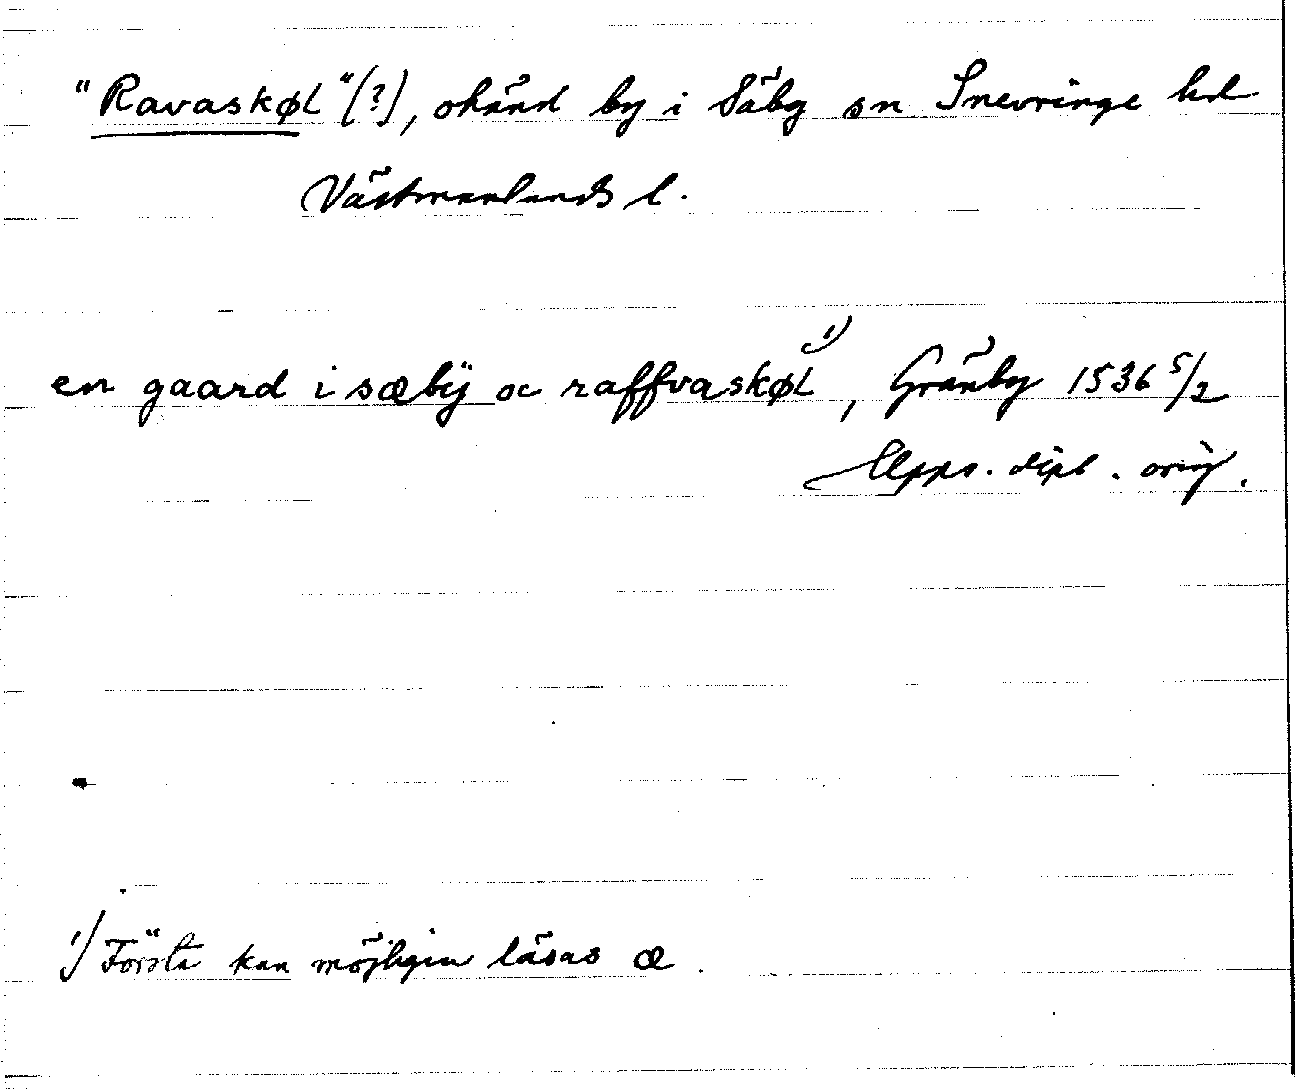 "Ravaskøl"(?), okänd by i Säby sn Snevringe hd
Västmanlands l.
en gaard i sæbÿ oc raffvaskøl 1), Gränby 1536 5/2
Upps. dipl. orig.
1) Första kan möjligen läsas æ.